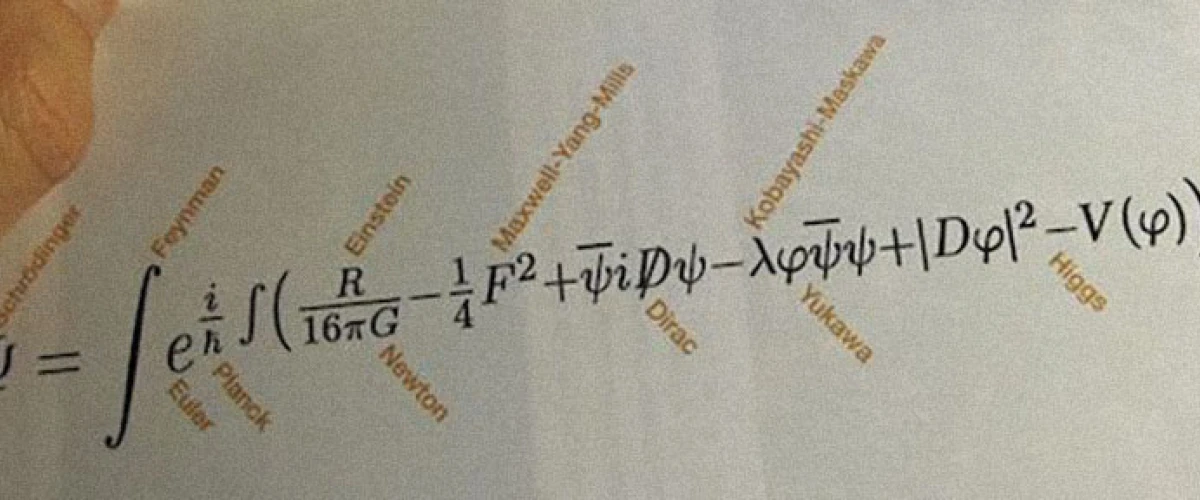 Schrödinger
Feynman
Einstein
Maxwell-Yang-Mills
Kobayashi-Maskawa
= ∫ e^{\frac{i}{ħ} ∫ ( \frac{R}{16πG} − \frac{1}{4} F² + ψ̄ i D̸ ψ − λφψ̄ψ + |Dφ|² − V(φ) )
Euler
Planck
Newton
Dirac
Yukawa
Higgs